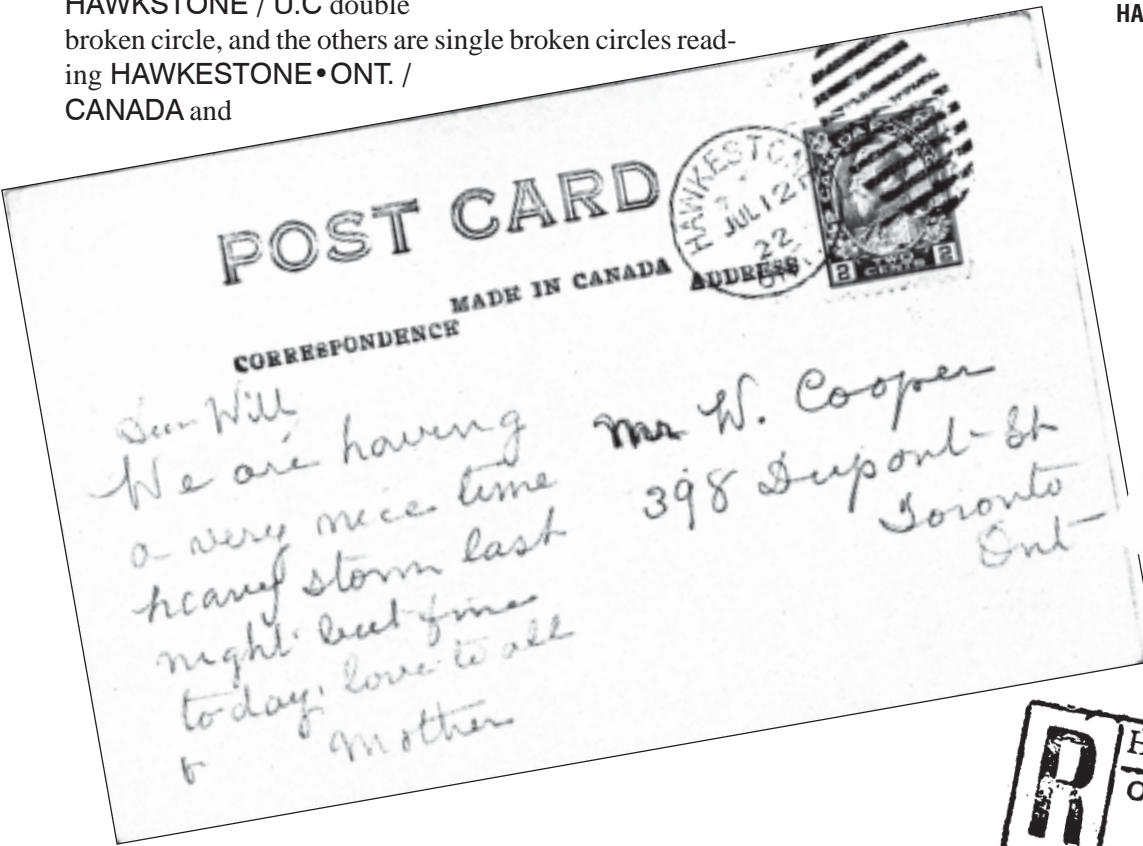 HAWKSTONE / U.C double
broken circle, and the others are single broken circles read-
ing HAWKESTONE•ONT. /
CANADA and
HA
POST CARD
HAWKESTON
JUL 12
22
ONT.
MADE IN CANADA
ADDRESS
CORRESPONDENCE
2 TWO CENTS 2
Dear Will
We are having
a very nice time
heavy storm last
night but fine
to day. love to all
Mother
Mr W. Cooper
398 Dupont St
Toronto
Ont
R
H
O